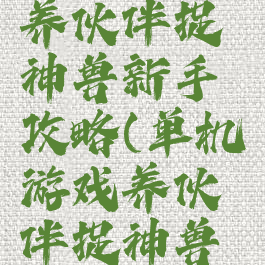 养伙伴捉
神兽新手
攻略(单机
游戏养伙
伴捉神兽